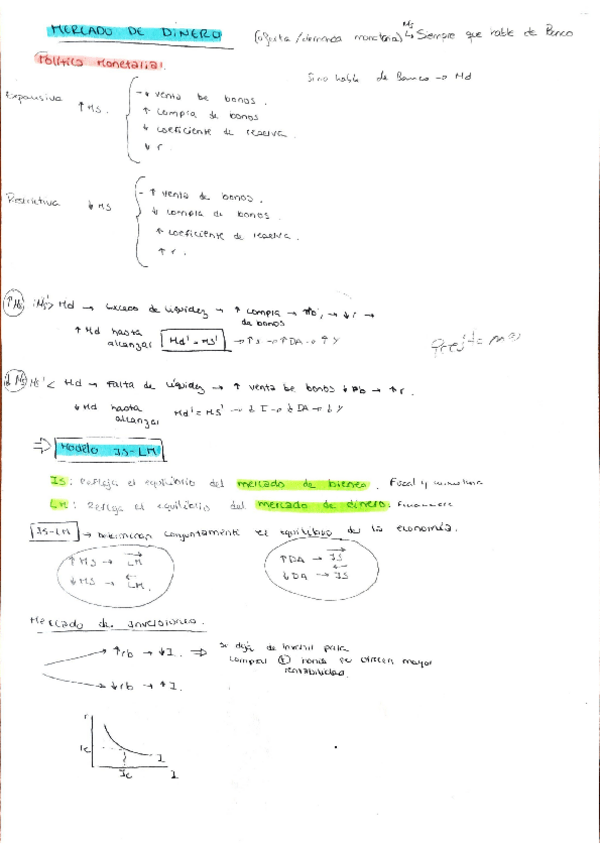 MERCADO DE DINERO (oferta/demanda monetaria) Ms ↳ Siempre que hable de Banco
Sino hable de Banco → Md
Política Monetaria:
Expansiva ↑Ms.
- ↓ venta be bonos.
↑ compra de bonos
↓ coeficiente de reserva.
↓ r.
Restrictiva ↓ Ms
- ↑ venta de bonos.
↓ compra de bonos.
↑ coeficiente de reserva.
↑ r.
↑Ms Ms > Md → exceso de liquidez → ↑ compra de bonos → ↓ r →
↑ Md hasta alcanzar Md' = Ms' → ↑DA → ↑Y
↓ Ms Ms' < Md → Falta de liquidez → ↑ venta be bonos ↓Pb → ↑r.
↓ Md hasta alcanzar Md' = Ms' → ↓ I → ↓ DA → ↓ Y
⇒ Modelo IS-LM
IS: Refleja el equilibrio del mercado de bienes. Fiscal y
LM: Refleja el equilibrio del mercado de dinero.
IS-LM → Determinan conjuntamente el equilibrio de la economía.
↑MS → LM →
↓MS → LM ←
↑DA → IS →
↓DA → IS ←
Mercado de inversiones.
→ ↑rb → ↓I. ⇒ se deja de invertir para
comprar bonos se ofrecen mayor
rentabilidad.
→ ↓rb → ↑I.
r
I
Ic
I